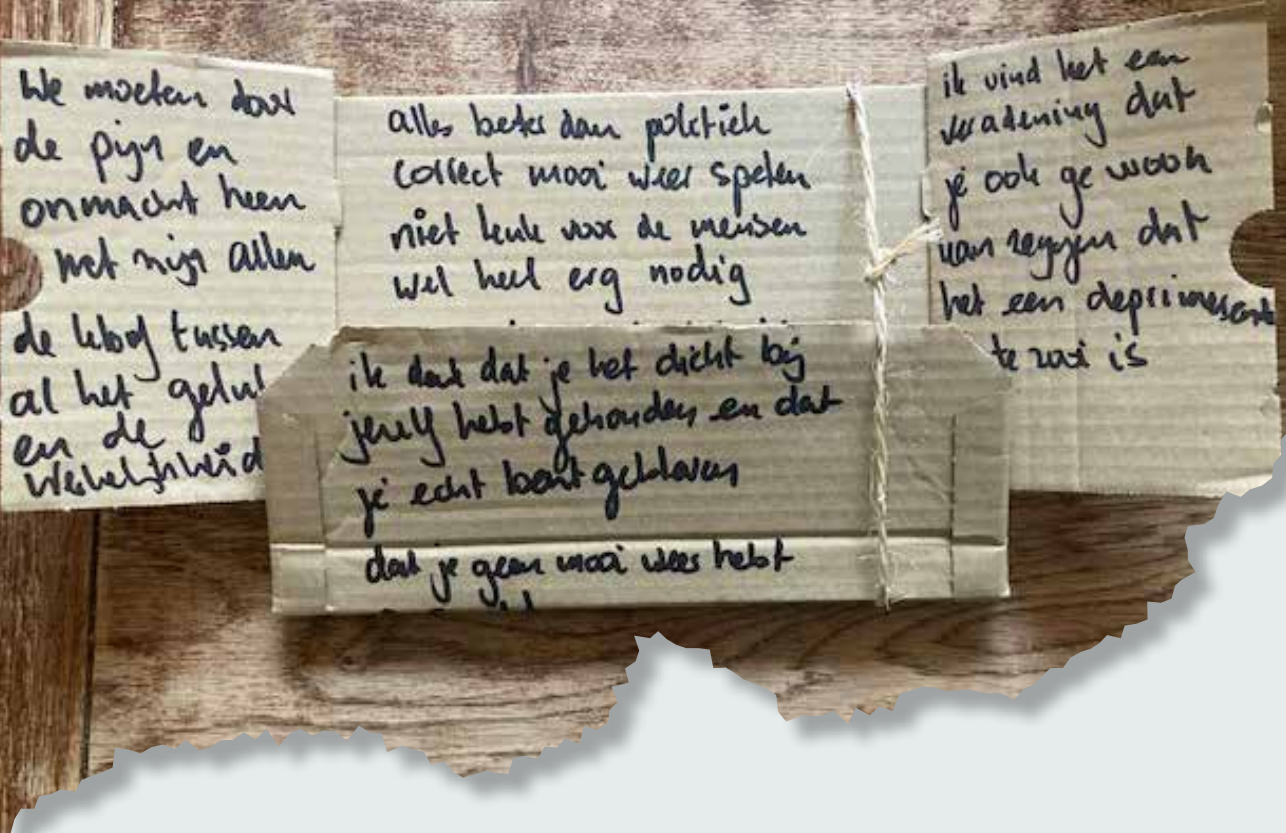 We moeten door
de pijn en
onmacht heen
met zijn allen
de kloof tussen
al het gelul
en de
werkelijkheid
alles beter dan politiek
correct mooi weer spelen
niet leuk voor de mensen
wel heel erg nodig
ik dat je het dicht bij
jezelf hebt gehouden en dat
je echt bent gebleven
dat je geen mooi weer hebt
ik vind het een
verademing dat
je ook gewoon
kan zeggen dat
het een deprimerende
zooi is